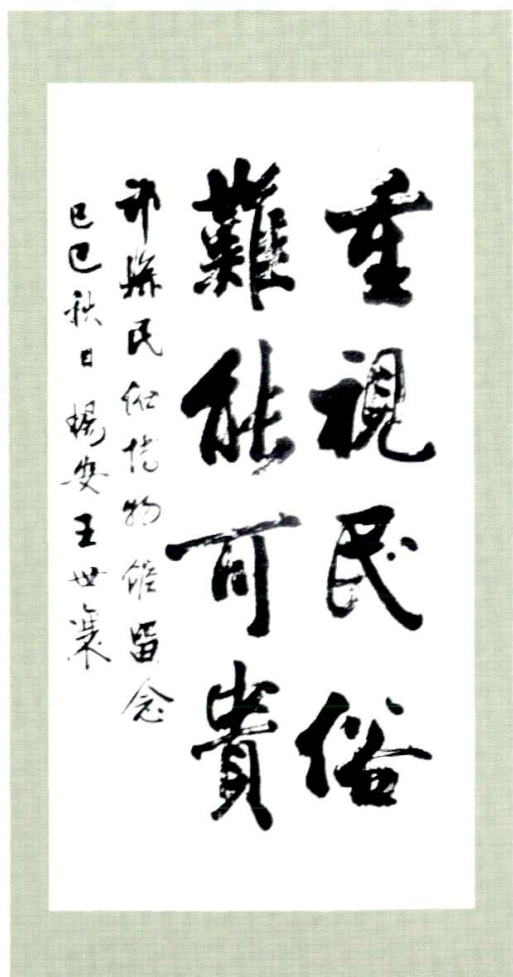 重視民俗
難能可貴
祁縣民俗博物館留念
己巳秋日暢安王世襄